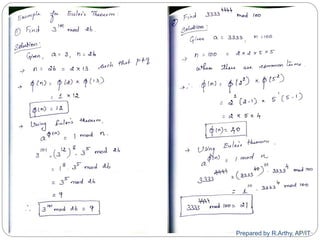 Example for Euler's Theorem
① Find 3^101 mod 26.
Solution:
Given, a = 3, n = 26
→ n = 26 = 2 × 13 such that p≠q
→ φ(n) = φ(2) × φ(13)
= 1 × 12
φ(n) = 12
→ Using Euler's theorem,
a^φ(n) = 1 mod n.
3^101 = (3^12)^8 . 3^5 mod 26
= 1^8 . 3^5 mod 26
= 3^5 mod 26
= 9
∴ 3^101 mod 26 = 9
② Find 3333^4444 mod 100
Solution:
Given a = 3333, n = 100
→ n = 100 = 2 × 2 × 5 × 5
When there are common
∴ φ(n) = φ(2^2) × φ(5^2)
= 2^1 (2-1) × 5^1 (5-1)
= 2 × 5 × 4
φ(n) = 40
→ Using Euler's theorem.
a^φ(n) = 1 mod n
3333^4444 = (3333^40) . 3333^4 mod 100
. 3333^4 mod 100
3333^4444 mod 100 = 21
Prepared by R.Arthy, AP/IT